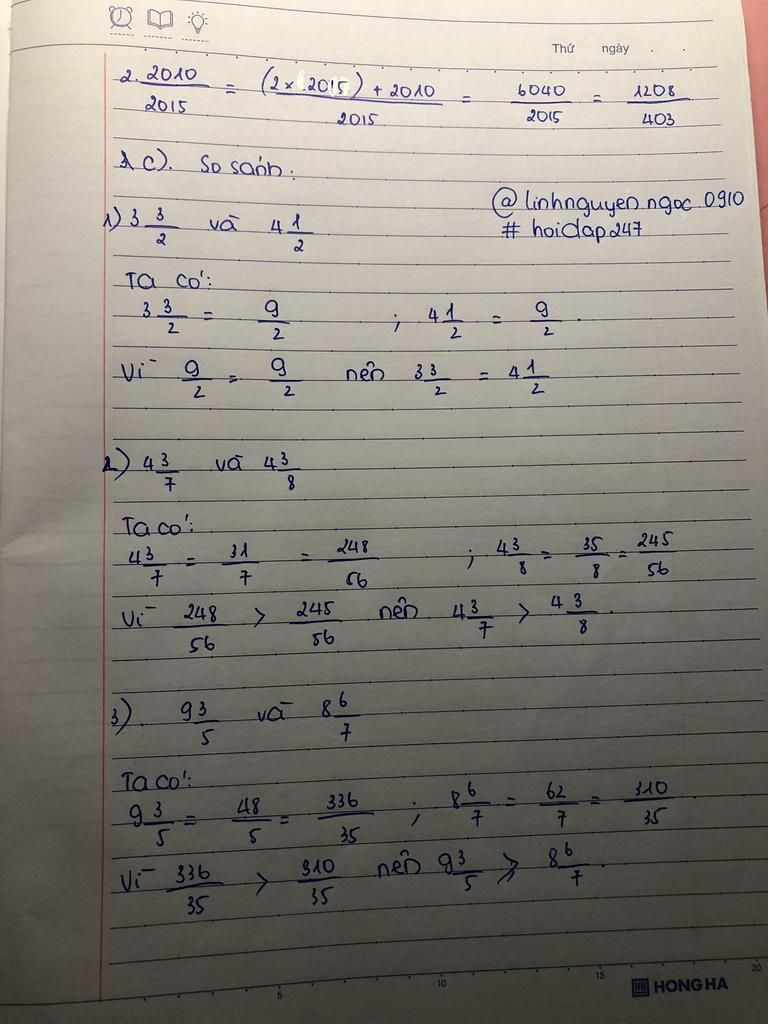 Thứ ngày . .
2 2010/2015 = (2 x 2015) + 2010 / 2015 = 6040/2015 = 1208/403
1 c). So sánh:
@linhnguyenngoc0910
1) 3 3/2 và 4 1/2
# hoidap247
Ta có:
3 3/2 = 9/2 ; 4 1/2 = 9/2.
Vì 9/2 = 9/2 nên 3 3/2 = 4 1/2
2) 4 3/7 và 4 3/8
Ta có:
4 3/7 = 31/7 = 248/56 ; 4 3/8 = 35/8 = 245/56
Vì 248/56 > 245/56 nên 4 3/7 > 4 3/8.
3) 9 3/5 và 8 6/7
Ta có:
9 3/5 = 48/5 = 336/35 ; 8 6/7 = 62/7 = 310/35
Vì 336/35 > 310/35 nên 9 3/5 > 8 6/7.
5 10 15 20
HH HONG HA